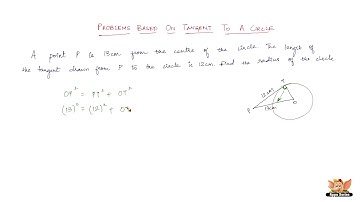 PROBLEMS BASED ON TANGENT TO A CIRCLE
A point P is 13cm from the centre of the circle. The length of
the tangent drawn from P to the circle is 12cm. Find the radius of the circle
OP² = PT² + OT²
(13)² = (12)² + OT
T
12cm
O
P
13cm